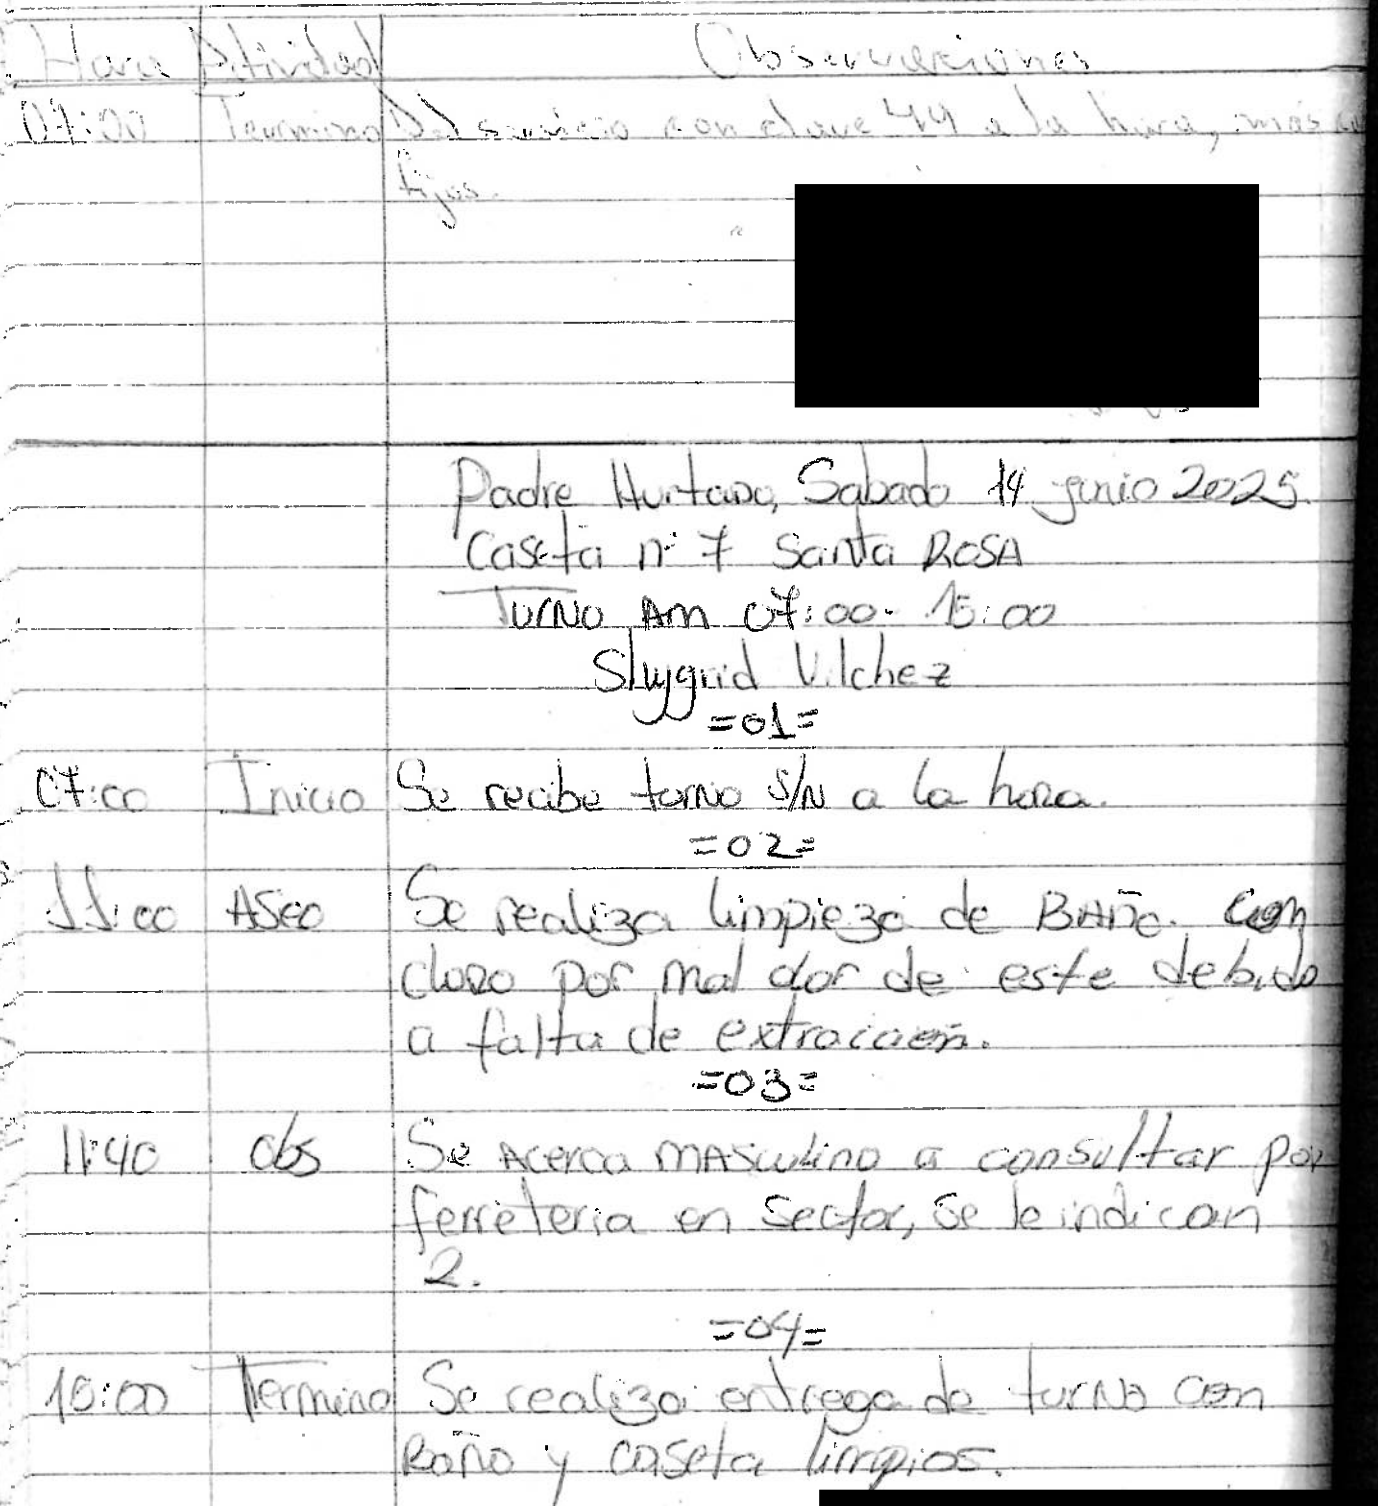 Hora Actividad Observaciones
07:00 Termino Del servicio con clave 44 a la hora, más
fijos.
Padre Hurtado, Sabado 14 junio 2025.
Caseta n° 7 Santa ROSA
Turno Am 07:00- 15:00
Slygrid Vilchez
=01=
07:00 Inicio Se recibe turno S/N a la hora.
=02=
11:00 ASeo Se realiza limpieza de BAño. con
cloro por mal olor de este debido
a falta de extracion.
=03=
11:40 obs Se Acerca mASculino a consultar por
ferreteria en Sector, se le indican
2.
=04=
15:00 Termino Se realiza entrega de turno con
Baño y caseta limpios.